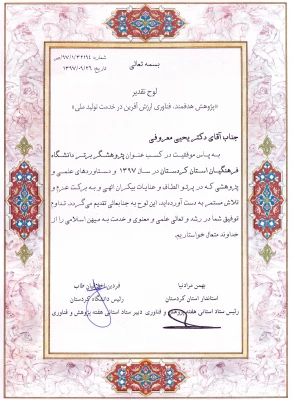 شماره: ۹۷/۱/۳۲۱۹۴/ص
تاریخ: ۱۳۹۷/۰۹/۲۶
بسمه تعالی
لوح تقدیر
«پژوهش هدفمند، فناوری ارزش آفرین در خدمت تولید ملی»
جناب آقای دکتر یحیی معروفی
به پاس موفقیت در کسب عنوان پژوهشگر برتر دانشگاه
فرهنگیان استان کردستان در سال ۱۳۹۷ و دستاوردهای علمی و
پژوهشی که در پرتو الطاف و عنایات بیکران الهی و به برکت عزم و
تلاش مستمر به دست آورده‌اید، این لوح به جنابعالی تقدیم می‌گردد. تداوم
توفیق شما در رشد و تعالی علمی و معنوی و خدمت به میهن اسلامی را از
خداوند متعال خواستاریم.
بهمن مرادنیا
استاندار استان کردستان
رئیس ستاد استانی هفته پژوهش و فناوری
فردین
رئیس دانشگاه کردستان
دبیر ستاد استانی هفته پژوهش و فناوری